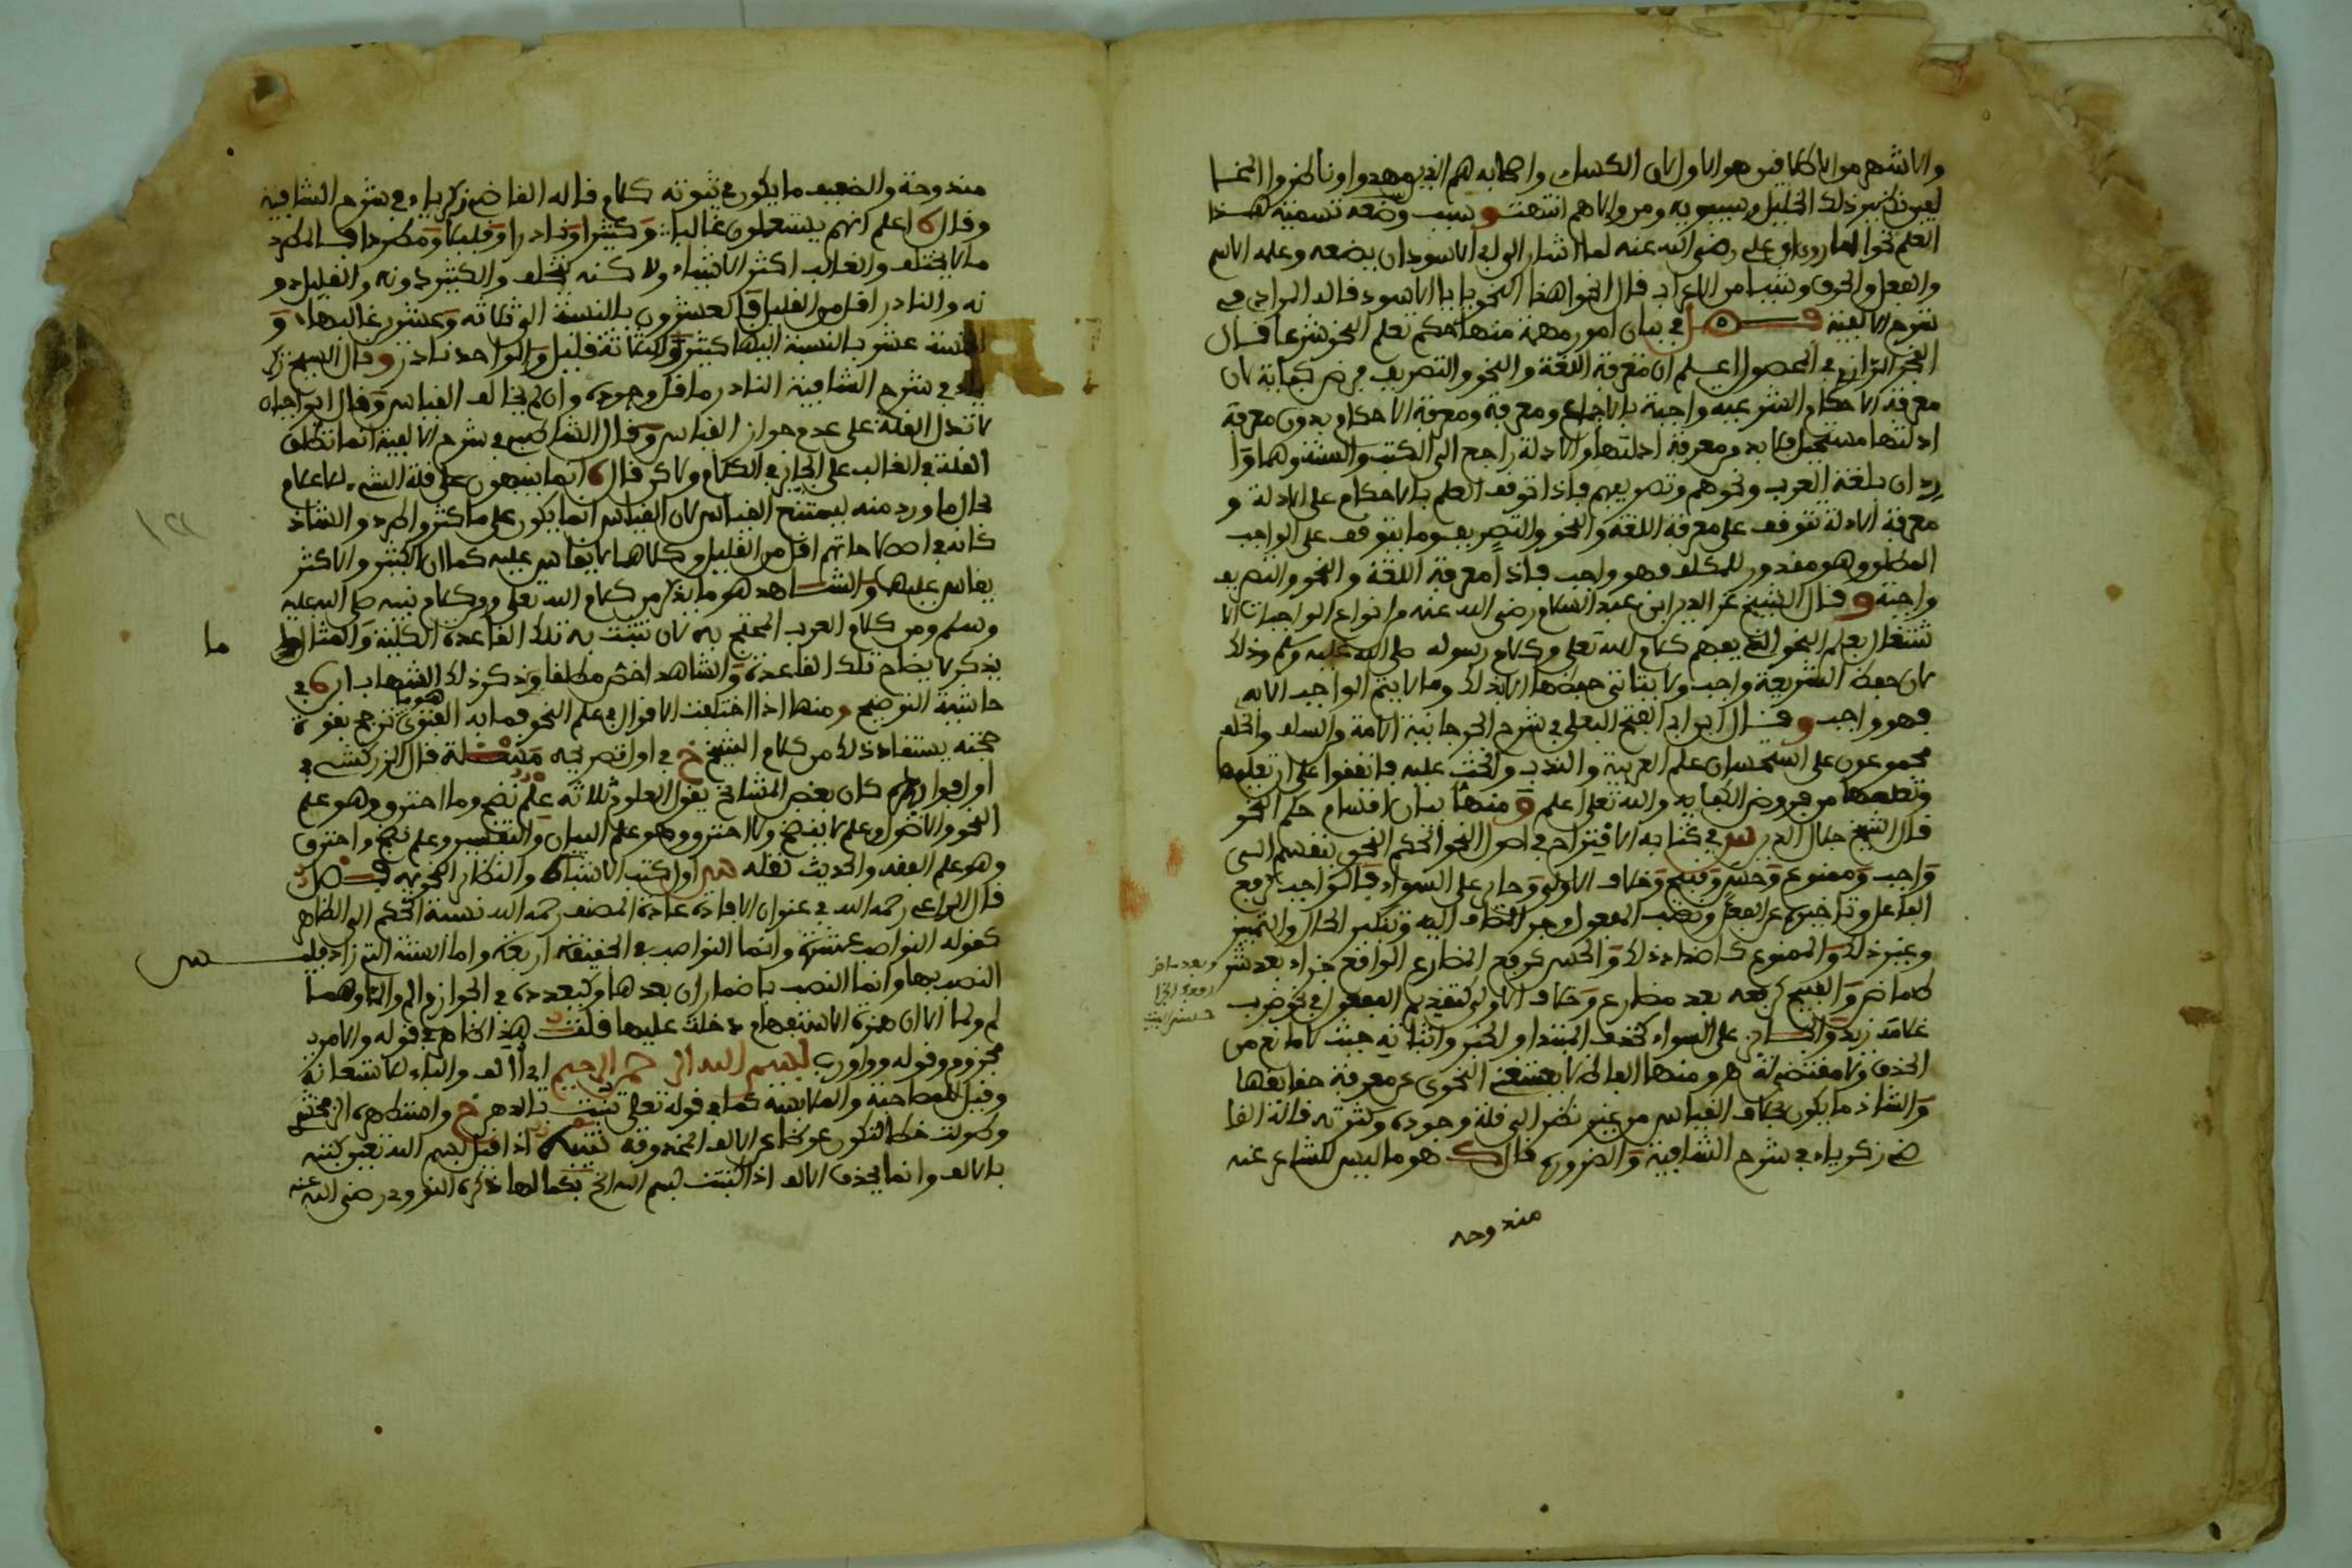 والاشهر من الاطلاقين هو الاول لان الكسائي واصحابه هم الذين مهدوا وناظروا
ذلك الخليل وسيبويه ومن والاهم انتهت و سبب وضعه تسمية هذا
العلم نحوا لما روي ان علي رضي الله عنه لما اشار الى ابي الاسود ان يضعه وعلمه الاسم
والفعل والحرف وشيئا من الاعراب قال انحوا هذا النحو يا ابا الاسود قاله المرادي في
شرح الالفية فصل في بيان امور مهمة منها حكم تعلم النحو شرعا قال
الفخر الرازي في المحصول اعلم ان معرفة اللغة والنحو والتصريف فرض كفاية لان
معرفة الاحكام الشرعية واجبة بالاجماع ومعرفة الاحكام بدون معرفة
ادلتها مستحيل فلا بد من معرفة ادلتها والادلة راجع الى الكتب والسنة وهما وا
ردان بلغة العرب ونحوهم وتصريفهم فاذا توقف العلم بالاحكام على الادلة و
معرفة الادلة تتوقف على معرفة اللغة والنحو والتصريف وما يتوقف على الواجب
المطلق وهو مقدور للمكلف فهو واجب فاذا معرفة اللغة والنحو والتصريف
واجبة و قال الشيخ عز الدين ابن عبد السلام رضي الله عنه من انواع الواجبات الا
شتغال بعلم النحو الذي يفهم كلام الله تعلى وكلام رسوله صلى الله عليه وسلم وذلك
لان حفظ الشريعة واجب ولا يتاتى حفظها الا بذلك وما لا يتم الواجب الا به
فهو واجب و قال ابن ابي الفتح البعلي في شرح الجرجانية الامة والسلف والخلف
مجموعون على استحسان علم العربية والندب والحث عليه فاتفقوا على ان تعليمها
وتعلمها من فروض الكفاية والله تعلى اعلم و منها بيان اقسام حكم النحو
قال الشيخ جلال الدين س في كتابه الاقتراح في اصول النحو الحكم النحوي ينقسم الى
واجب وممنوع وحسن وقبيح وخلاف الاولى وجائز على السواء فالواجب كرفع
الفاعل وتاخيره عن الفعل ونصب المفعول وجر المضاف اليه وتنكير الحال والتمييز
وغير ذلك والممنوع كاضداد ذلك والحسن كرفع المضارع الواقع جزاء بعد شر
ط ماض والقبيح كرفعه بعد مضارع وخلاف الاولى كتقديم المفعول في نحو ضرب
غلامه زيد والجائز على السواء كحذف المبتدا والخبر واثباته حيث لا مانع من
الحذف ولا مقتضي له و منها الفاظ لا يستغني النحوي عن معرفة حقائقها
والشاذ ما يكون بخلاف القياس من غير نظر الى قلة وجوده وكثرته قاله القا
ضي زكرياء في شرح الشافية والضرورة قال ك هو ما ليس للشاعر عنه
مندوحه
وبعد ماض
رفعك الجزا
حسن البيت
مندوحة والضعيف ما يكون في ثبوته كلام قاله القاضي زكرياء في شرح الشافية
وقال اعلم انهم يستعملون غالبا وكثيرا ونادرا وقليلا ومطردا فالمطرد
ما لا يختلف والغالب اكثر الاشياء ولا كنه يختلف والكثير دونه والقليل دو
نه والنادر اقل من القليل فالعشرون بالنسبة الى ثلاثة وعشرين غالبها و
الخمسة عشر بالنسبة اليها كثير والثلاثة قليل والواحد نادر و قال الشيخ زكر
ياء في شرح الشافية النادر ما قل وجوده وان لم يخالف القياس وقال ابن اجيان
لا تدل القلة على عدم جواز القياس وقال الشاطبي في شرح الالفية انما تطلق
القلة في الغالب على الجائز في الكلام ولا كن قال انما ينبهون على قلة الشيء
بحال ما ورد منه ليمتنح القياس لان القياس انما يكون على ما كثر واطرد والشاذ
كانه في اصطلاحاتهم اقل من القليل وكلاهما لا يقاس عليه كما ان الكثير والاكثر
يقاس عليها والشاهد هو ما يذكر من كلام الله تعلى وكلام نبيه صلى الله عليه
وسلم ومن كلام العرب المحتج به لان تثبت به تلك القاعدة الكلية والمثال
ما
يذكر لايضاح تلك القاعدة والشاهد اخص مطلقا وذكر ذلك الشهاب في
حاشية التوضيح و منها اذا اختلفت الاقوال في علم النحو فما به الفتوى هو ما ترجح بقوة
حجته يستفاد ذلك من كلام الشيخ خ في اول تصريحه مسئلة قال الزركشي في
اول قواعده كان بعض المشائخ يقول العلوم ثلاثة علم نضج وما احترق وهو علم
النحو والاصول وعلم لا ينضج ولا احترق وهو علم البيان والتفسير وعلم نضج واحترق
وهو علم الفقه والحديث نقله س اول كتب الاشباه والنظائر النحوية فصل
قال الراعي رحمه الله في عنوان الافادة عادة المصنف رحمه الله نسبة الحكم الى الظاهر
كقوله النواصب عشرة وانما النواصب في الحقيقة اربعة واما الستة التي زاد فليس
النصب بها وانما النصب باضمار ان بعدها وكبعدده في الجوازم الم والما وهما
لم ولما الا ان همزة الاستفهام دخلت عليها قلت هذا ظاهر في قوله والامر
مجزوم وقوله وواو رب بسم الله الرحمن الرحيم اي اءلف والباء للاستعانة
وقيل للمصاحبة والملابسة كما في قوله تعلى تنبت بالدهن خ واستظهره الزمخشري
وطولت خطا لتكون عوضا عن الالف المحذوفة تنبيه اذا قيل بسم الله تعين كتبه
بالالف وانما يحذف الالف اذا كتبت بسم الله الخ بكمالها ذكره النووي رضي الله عنه